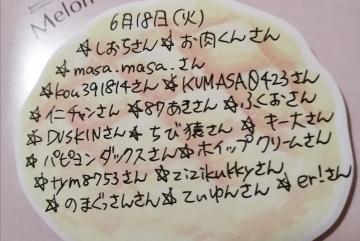 Melon
6月18日(火)
☆しおちさん☆お肉くんさん
☆masa.masa.さん
☆kou391814さん☆KUMASA0423さん
☆イニチャンさん☆87あきさん☆ふくおさん
☆DUSKINさん☆ちび猿さん☆キー大さん
☆パピヨンダックスさん☆ホイップクリームさん
☆tym8753さん☆zizikukkyさん
☆のまぐっさんさん☆てぃゆんさん☆er!さん